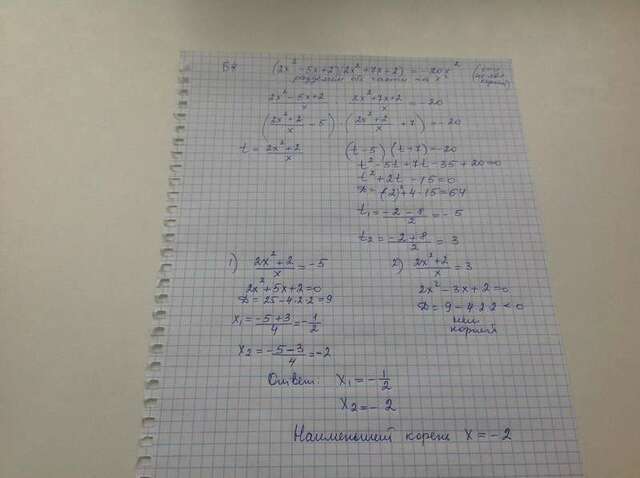 (2x² - 5x + 2)(2x² + 7x + 2) = -20x²
разделим обе части на x²
(2x² - 5x + 2)/x (2x² + 7x + 2)/x = -20
((2x² + 2)/x - 5) ((2x² + 2)/x + 7) = -20
t = (2x² + 2)/x (t - 5)(t + 7) = -20
t² - 5t + 7t - 35 + 20 = 0
t² + 2t - 15 = 0
D = (2)² + 4·15 = 64
t₁ = (-2 - 8)/2 = -5
t₂ = (-2 + 8)/2 = 3
1) (2x² + 2)/x = -5
2x² + 5x + 2 = 0
D = 25 - 4·2·2 = 9
x₁ = (-5 + 3)/4 = -1/2
x₂ = (-5 - 3)/4 = -2
2) (2x² + 2)/x = 3
2x² - 3x + 2 = 0
D = 9 - 4·2·2 < 0
нет
корней
Ответ: x₁ = -1/2
x₂ = -2
Наименьший корень x = -2